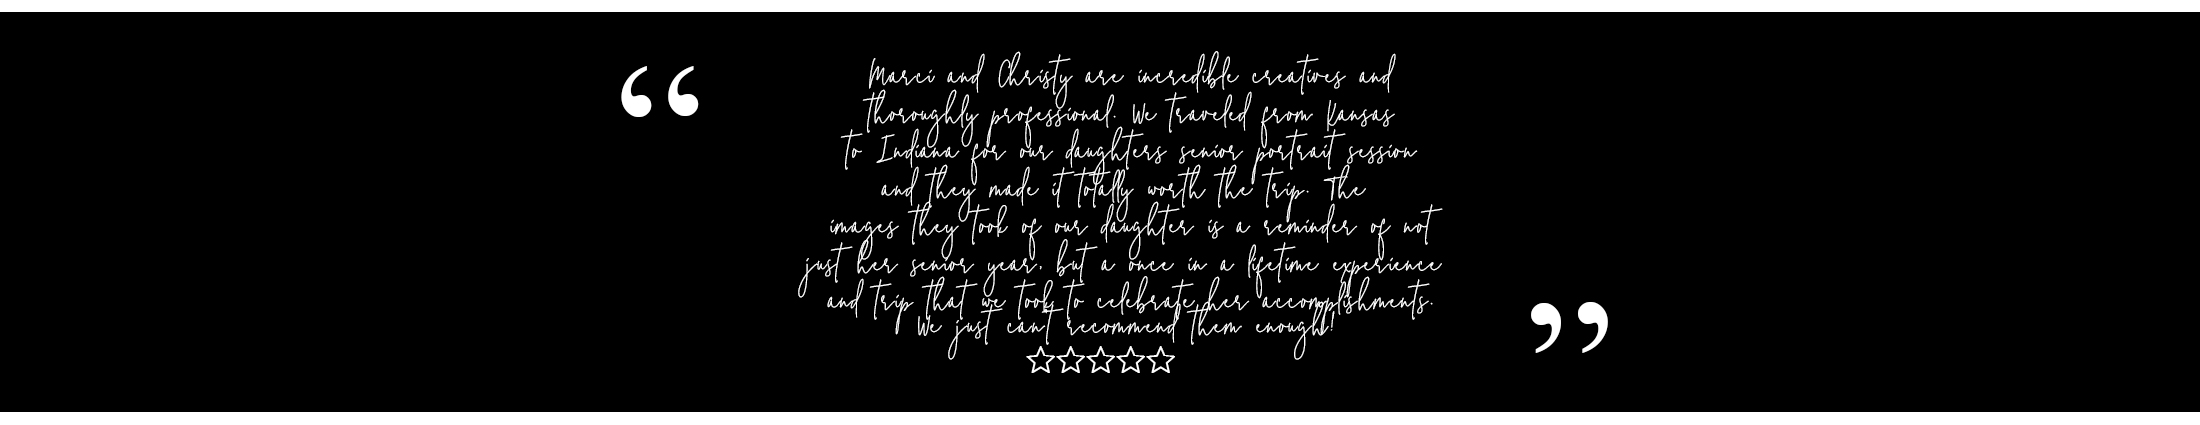 “
Marci and Christy are incredible creatives and
thoroughly professional. We traveled from Kansas
to Indiana for our daughters senior portrait session
and they made it totally worth the trip. The
images they took of our daughter is a reminder of not
just her senior year, but a once in a lifetime experience
and trip that we took to celebrate her accomplishments.
We just can't recommend them enough!
”